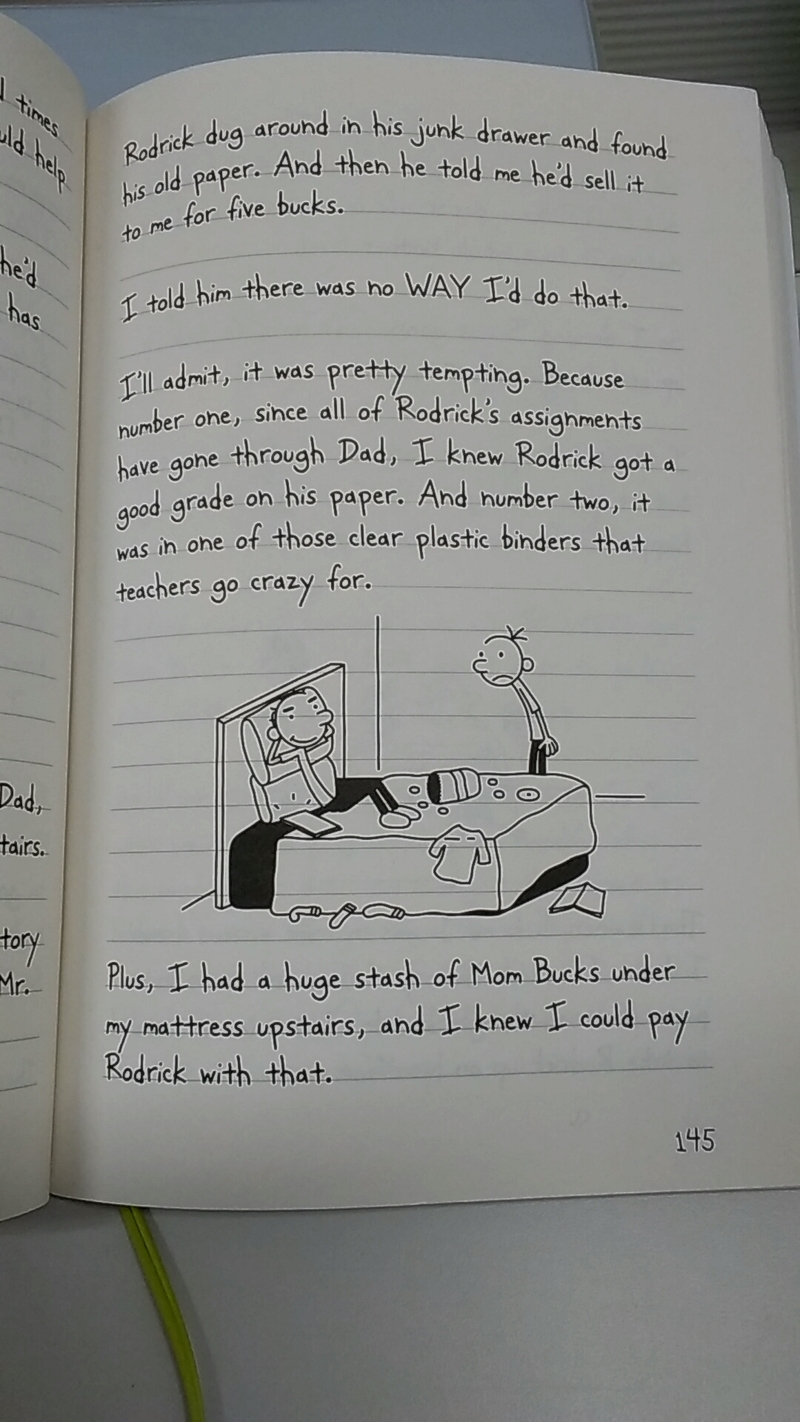 times
help
he'd
has
Dad,
tory
Mr.
Rodrick dug around in his junk drawer and found
his old paper. And then he told me he'd sell it
to me for five bucks.
I told him there was no WAY I'd do that.
I'll admit, it was pretty tempting. Because
number one, since all of Rodrick's assignments
have gone through Dad, I knew Rodrick got a
good grade on his paper. And number two, it
was in one of those clear plastic binders that
teachers go crazy for.
Plus, I had a huge stash of Mom Bucks under
my mattress upstairs, and I knew I could pay
Rodrick with that.
145